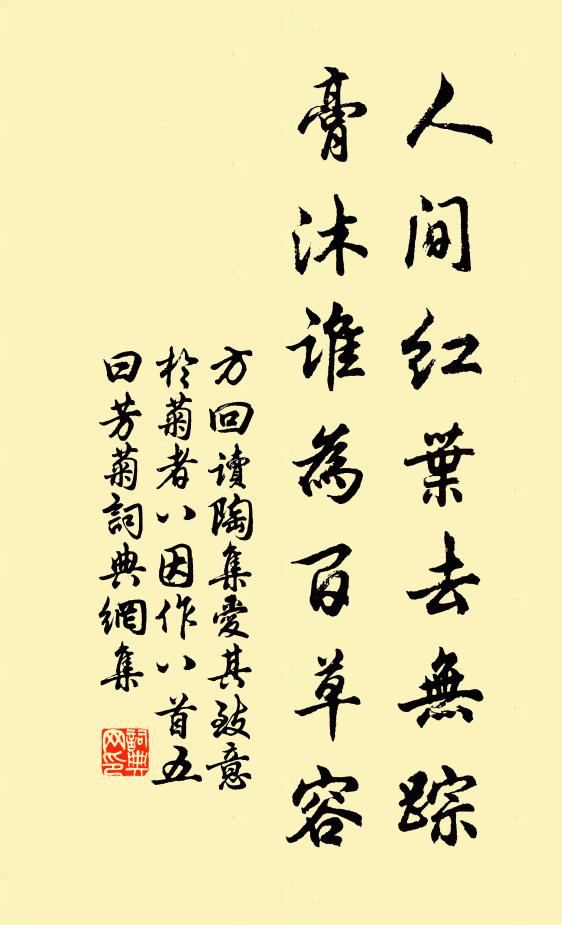 人间红葉去無踪
膏沐谁為百草容
方回读陶集爱其致意
於菊者八因作八首五
曰芳菊詞典網集
詞典网印